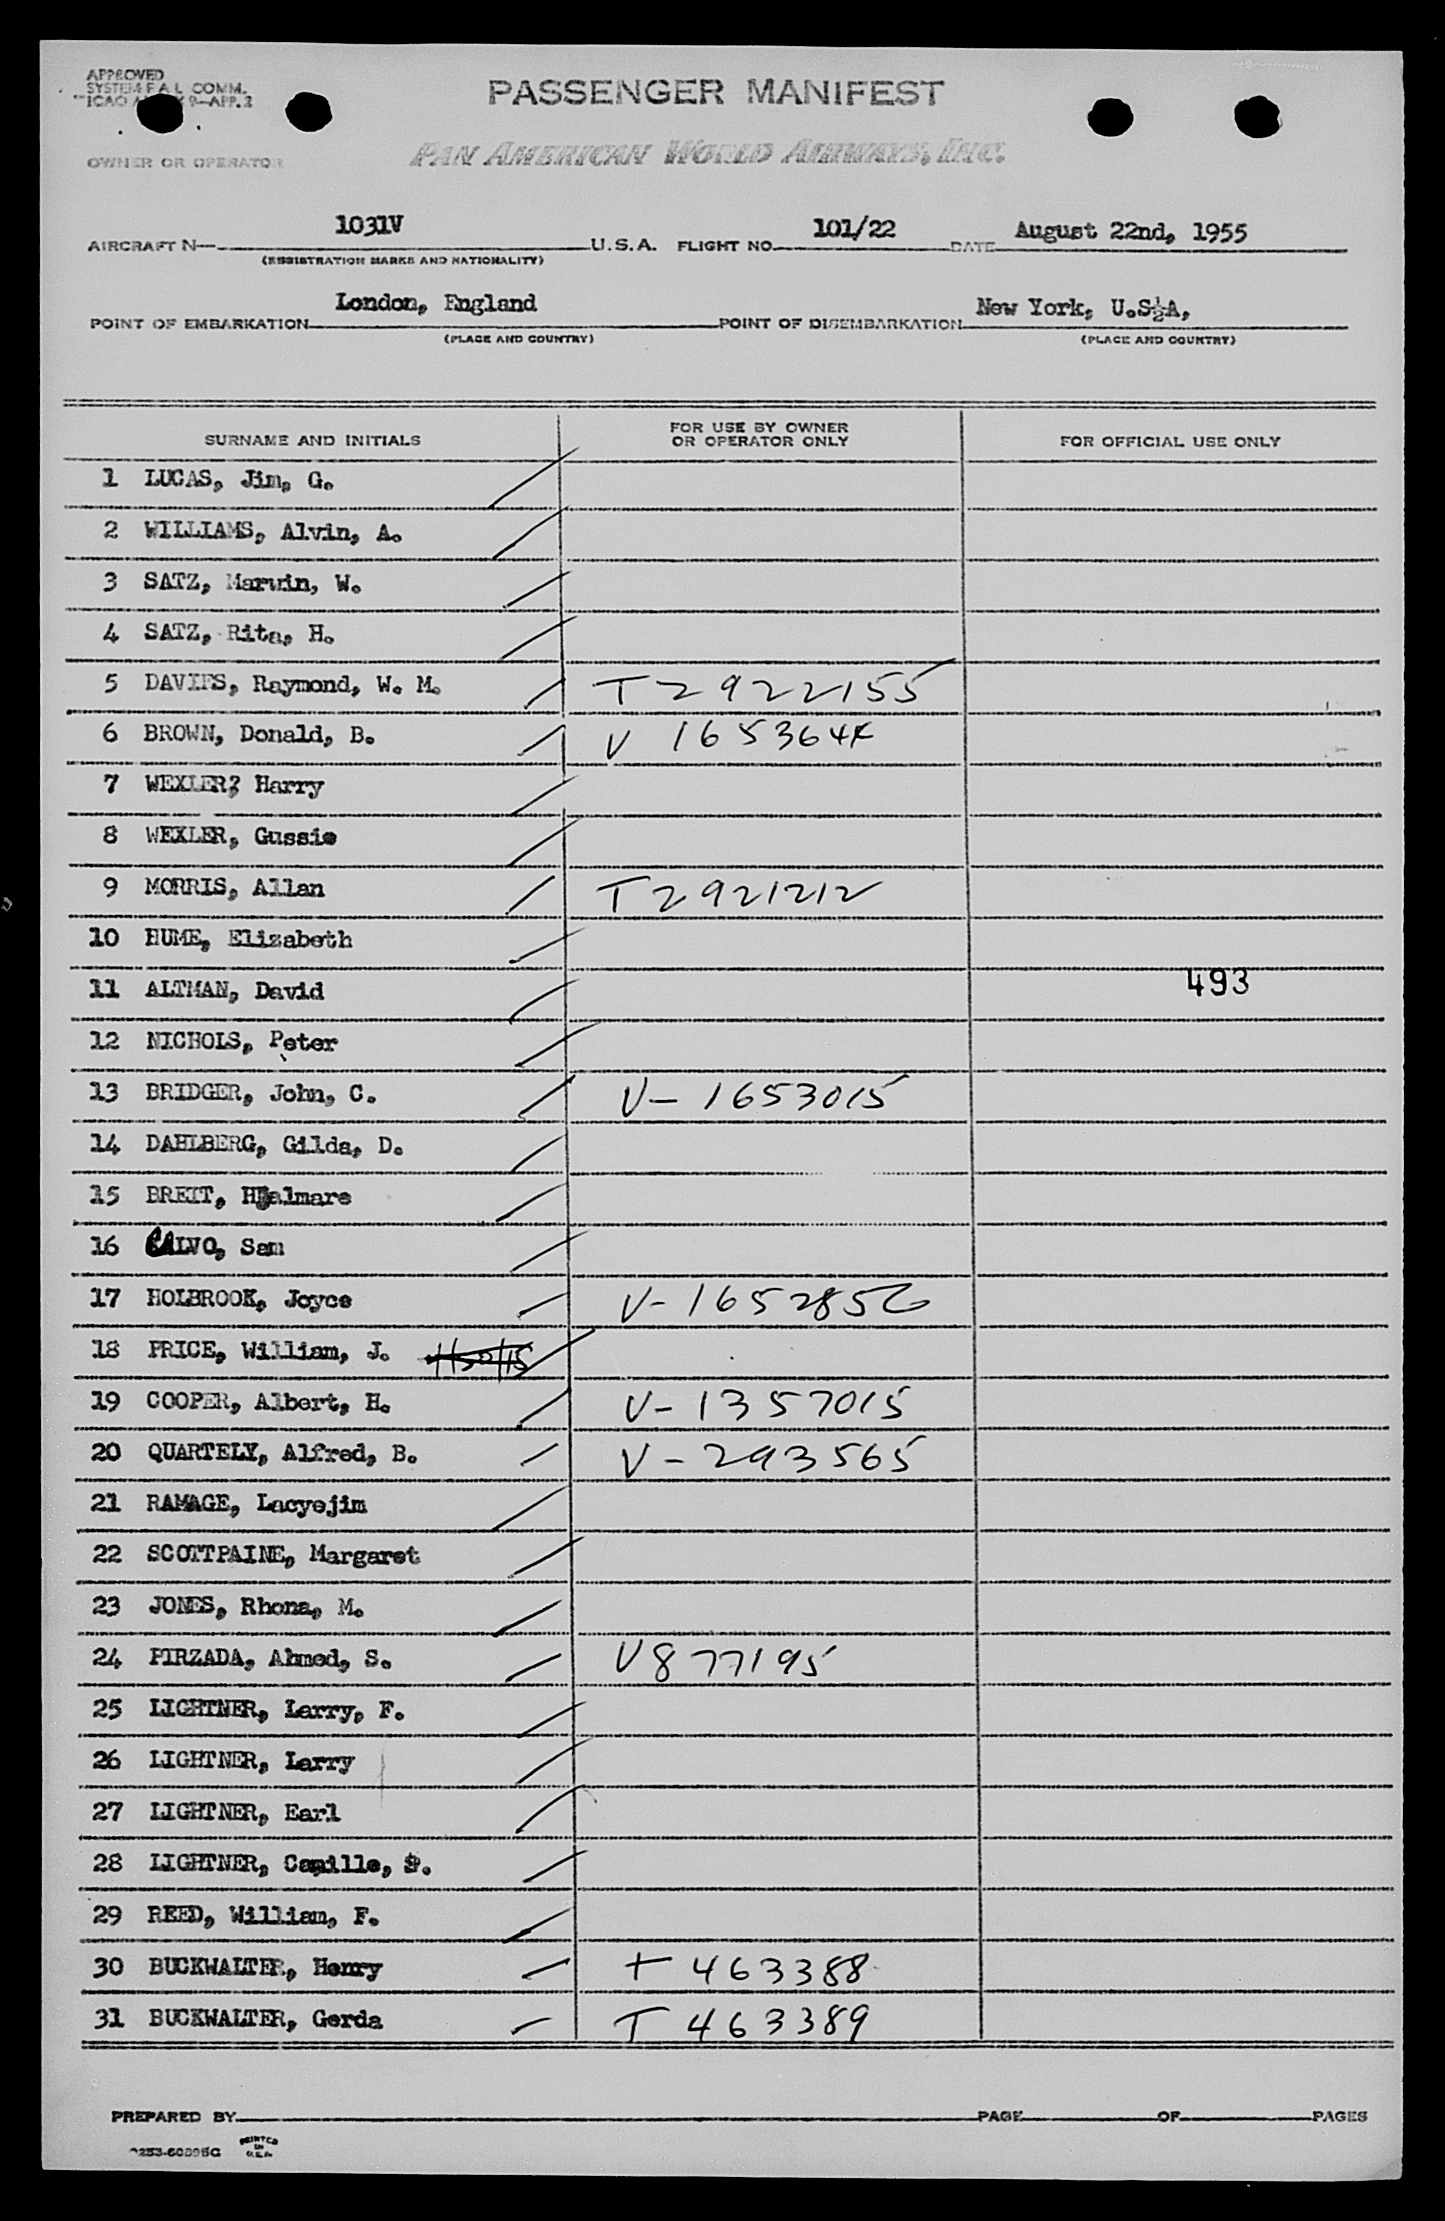 APPROVED
SYSTEM F A L COMM.
ICAO 9—APP. 2
PASSENGER MANIFEST
OWNER OR OPERATOR
PAN AMERICAN WORLD AIRWAYS, INC.
AIRCRAFT N— 1031V U.S.A. FLIGHT NO. 101/22 DATE August 22nd, 1955
(REGISTRATION MARKS AND NATIONALITY)
POINT OF EMBARKATION London, England POINT OF DISEMBARKATION New York, U.S½A,
(PLACE AND COUNTRY) (PLACE AND COUNTRY)
SURNAME AND INITIALS FOR USE BY OWNER OR OPERATOR ONLY FOR OFFICIAL USE ONLY
1 LUCAS, Jim, G.
2 WILLIAMS, Alvin, A.
3 SATZ, Marwin, W.
4 SATZ, Rita, H.
5 DAVIES, Raymond, W. M. T2922155
6 BROWN, Donald, B. V 1653644
7 WEXLER? Harry
8 WEXLER, Gussie
9 MORRIS, Allan T2921212
10 HUME, Elizabeth
11 ALTMAN, David 493
12 NICHOLS, Peter
13 BRIDGER, John, C. V- 1653015
14 DAHLBERG, Gilda, D.
15 BREIT, Hjalmare
16 CALVO, Sam
17 HOLBROOK, Joyce V- 1652856
18 PRICE, William, J.
19 COOPER, Albert, H. V- 1357015
20 QUARTELY, Alfred, B. V- 293565
21 RAMAGE, Lacyejim
22 SCOTTPAINE, Margaret
23 JONES, Rhona, M.
24 PIRZADA, Ahmed, S. V877195
25 LIGHTNER, Larry, F.
26 LIGHTNER, Larry
27 LIGHTNER, Earl
28 LIGHTNER, Camille, S.
29 REED, William, F.
30 BUCKWALTER, Henry T 463388
31 BUCKWALTER, Gerda T 463389
PREPARED BY PAGE OF PAGES
PRINTED IN U.S.A.